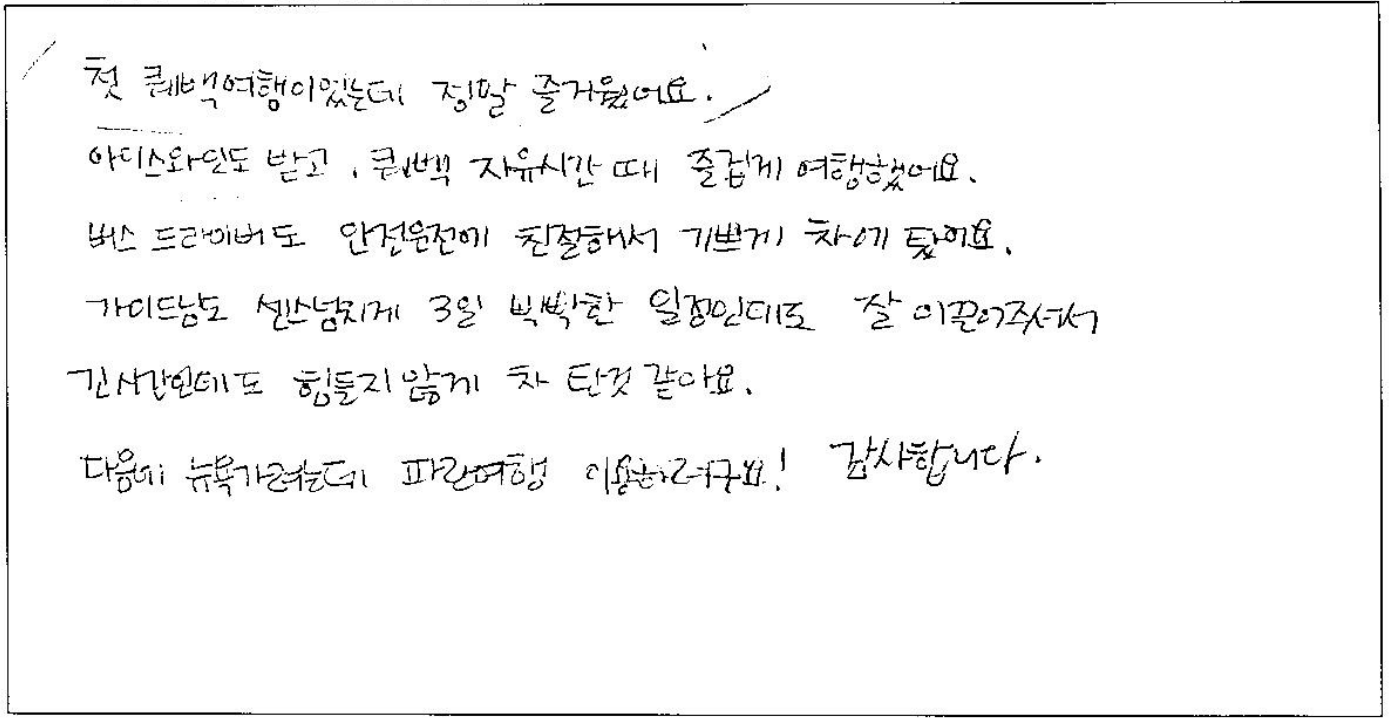 첫 퀘백여행이었는데 정말 즐거웠어요.
아이스와인도 받고, 퀘백 자유시간 때 즐겁게 여행했어요.
버스 드라이버도 안전운전에 친절해서 기쁘게 차에 탔어요.
가이드님도 센스넘치게 3일 빡빡한 일정인데도 잘 이끌어주셔서
긴시간인데도 힘들지 않게 차 탄것 같아요.
다음에 뉴욕가려는데 파란여행 이용하려구요! 감사합니다.